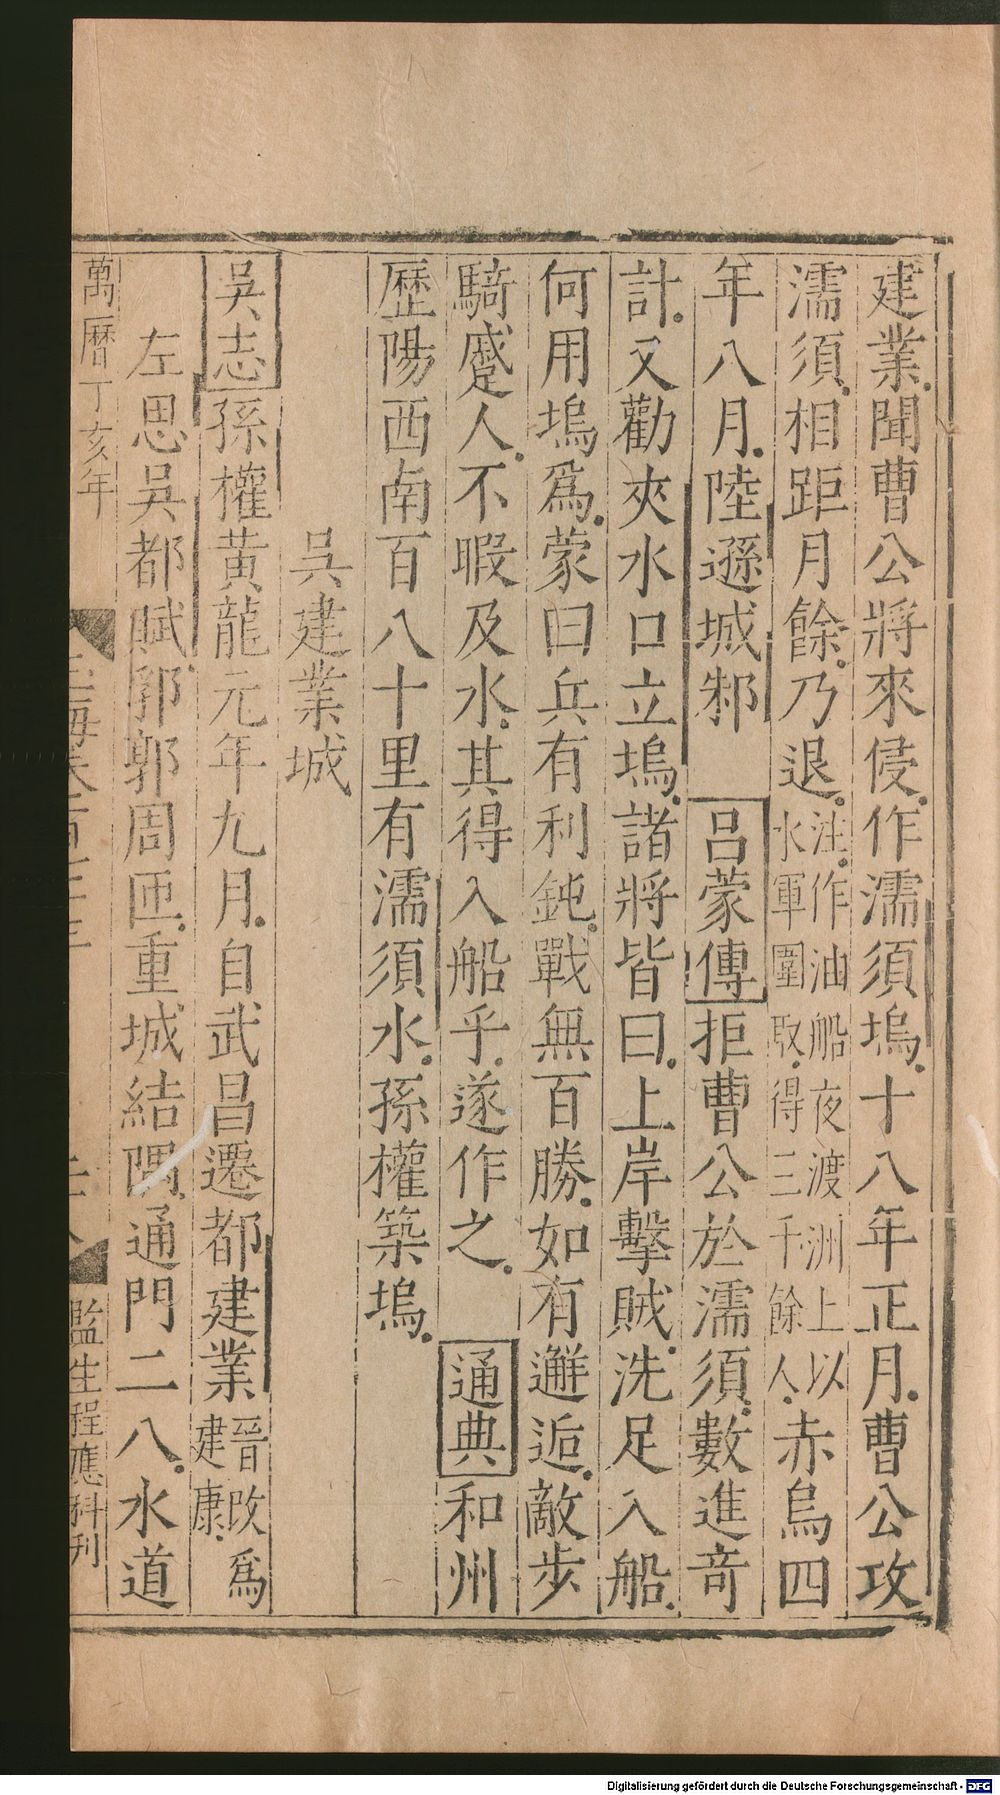 建業聞曹公將來侵作濡須塢十八年正月曹公攻
濡須相距月餘乃退注作油船夜渡洲上以水軍圍取得三千餘人赤烏四
年八月陸遜城邾 呂蒙傳拒曹公於濡須數進奇
計又勸夾水口立塢諸將皆曰上岸擊賊洗足入船
何用塢爲蒙曰兵有利鈍戰無百勝如有邂逅敵步
騎蹙人不暇及水其得入船乎遂作之 通典和州
歷陽西南百八十里有濡須水孫權築塢
吳建業城
吳志孫權黃龍元年九月自武昌遷都建業晉改爲建康
左思吳都賦郛郭周匝重城結隅通門二八水道
萬曆丁亥年
監生程應科刊
Digitalisierung gefördert durch die Deutsche Forschungsgemeinschaft - DFG